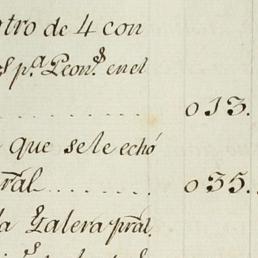 tro de 4 con
s p.ª Peon.ˢ en el
. . . . . . . . . . 013.
que se le echó
ral. . . . . . . . . 035.
la Galera pral.